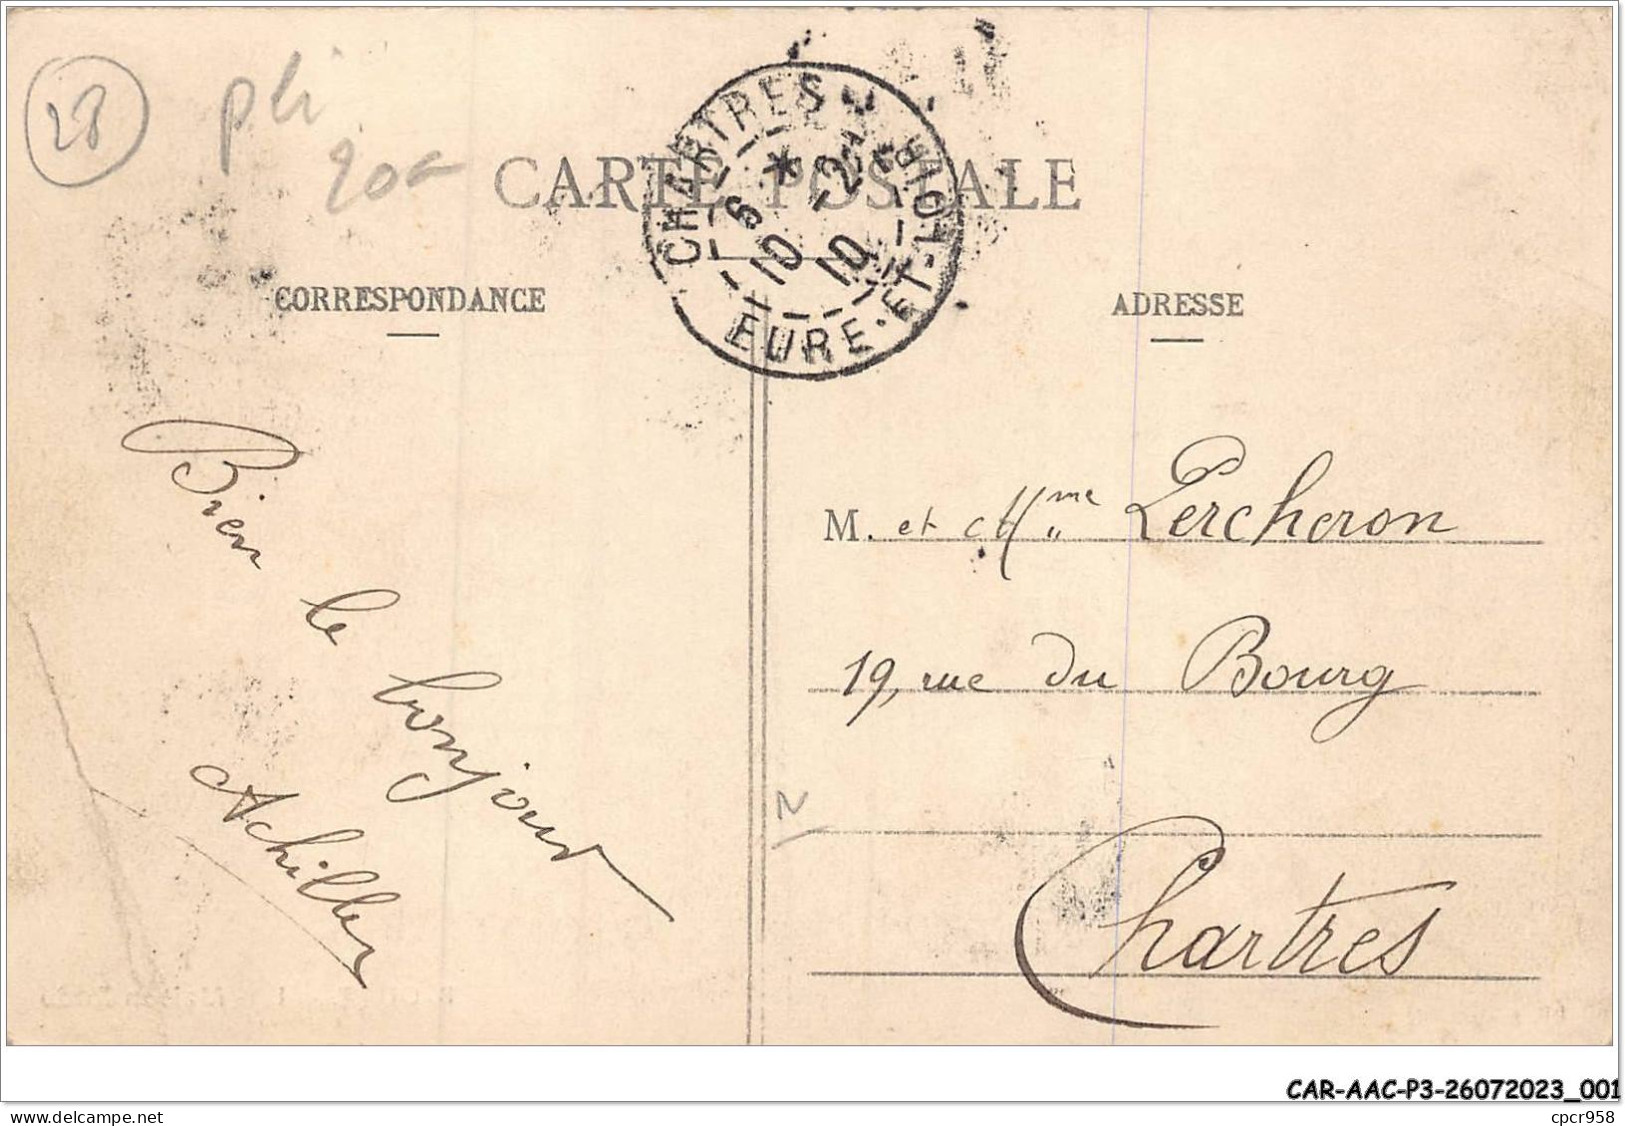 28
pli
CARTE POSTALE
CHARTRES
EURE-ET-LOIR
6 * 2
10 10
CORRESPONDANCE
ADRESSE
Bien
le
bonjour
Achille
M. et Mme Percheron
19, rue du Bourg
Chartres
CAR-AAC-P3-26072023_001
www.delcampe.net
cpcr958